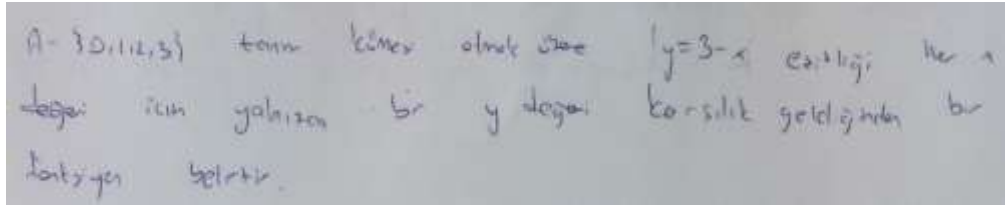 A= {0,1,2,3} tanım kümesi olmak üzere y=3-x eşitliği her x
değeri için yalnızca bir y değeri karşılık geldiğinden bir
fonksiyon belirtir.